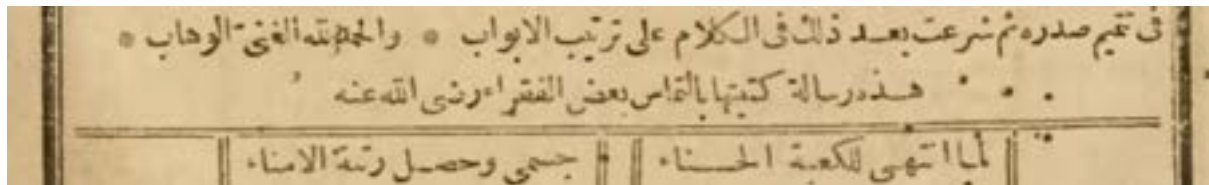 فى تتميم صدره ثم شرعت بعد ذلك فى الكلام على ترتيب الابواب * والحمد لله الغنى الوهاب *
هذه رسالة كتبتها بالتماس بعض الفقراء رضى الله عنه
لما انتهى للكعبة الحسناء جسمى وحصل رتبة الامناء